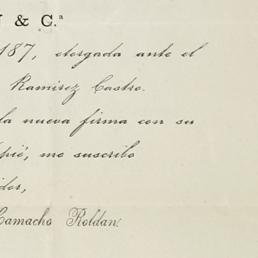 & C.ª
187, otorgada ante el
Ramirez Castro.
la nueva firma con su
me suscribo
Camacho Roldan